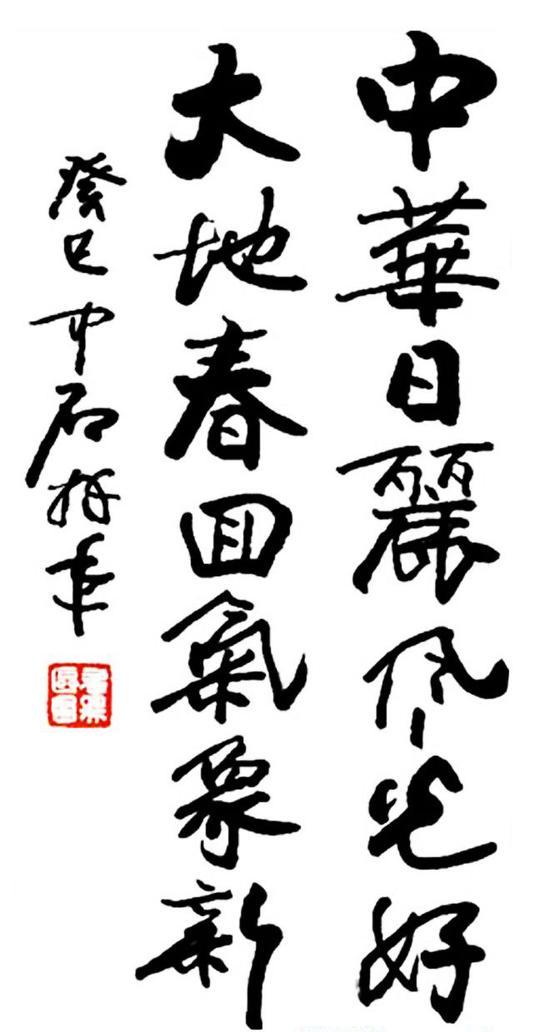 中華日麗风光好
大地春回氣象新
癸巳中石拜年